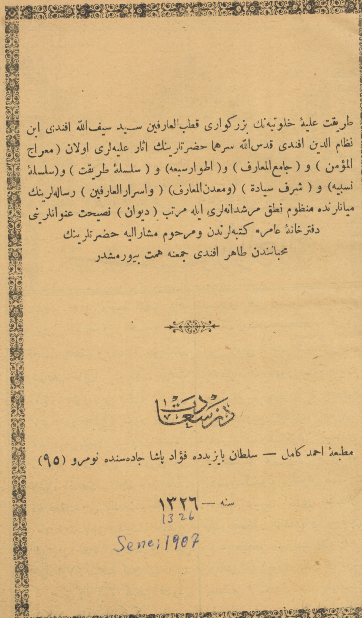 طریقت علیۀ خلوتیه‌نك بزرگواری قطب‌العارفین سید سیف‌الله افندی ابن
نظام الدین افندی قدس‌الله سرهما حضرتلرینك اثار علیه‌لری اولان ( معراج
المؤمن ) و ( جامع‌المعارف ) و( اطوار سبعه ) و ( سلسلۀ طریقت ) و(سلسلۀ
نسبیه ) و ( شرف سیادة ) (ومعدن‌المعارف ) (واسرارالعارفین ) رساله‌لرینك
میانلرنده منظوم نطق مرشدانه‌لری ایله مرتب ( دیوان ) فصیحت عنوانلرینی
دفترخانۀ عامره کتبه‌لرندن ومرحوم مشارالیه حضرتلرینك
محباننندن طاهر افندی جمعنه همت بیورمشدر
درسعادت
مطبعۀ احمد کامل — سلطان بایزیدده فؤاد پاشا جاده‌سنده نومرو (٩٥)
سنه — ١٣٢٦
1326
Sene; 1907